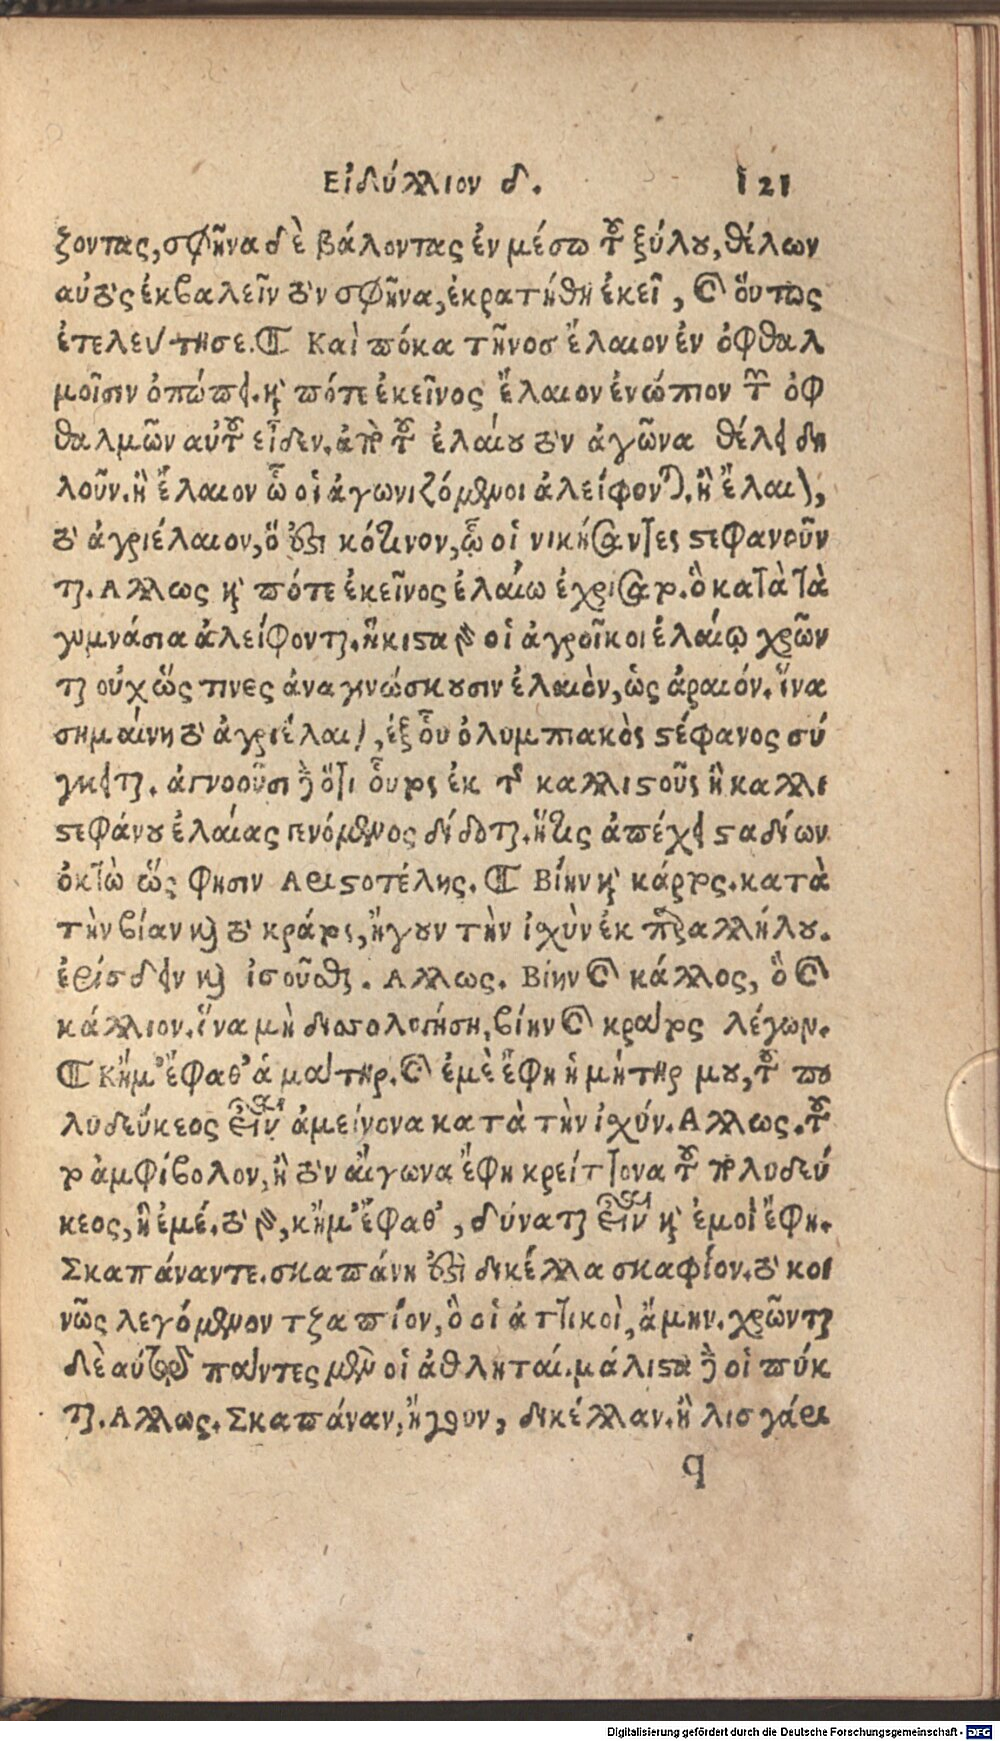 Εἰδύλλιον δ. 121
ζοντας, σφῆνα δὲ βάλοντας ἐν μέσω τοῦ ξύλου, θέλων
αὐτὸς ἐκβαλεῖν τὸν σφῆνα, ἐκρατήθη ἐκεῖ, καὶ οὕτως
ἐτελεύτησε. ¶ Καὶ πόκα τῆνοσ ἔλαιον ἐν ὀφθαλ
μοῖσιν ὀπώπει. καὶ πότε ἐκεῖνος ἔλαιον ἐνώπιον τῶν ὀφ
θαλμῶν αὐτοῦ εἶδεν. ἀπὸ τοῦ ἐλαίου τὸν ἀγῶνα θέλει δη
λοῦν. ἢ ἔλαιον ὧ οἱ ἀγωνιζόμενοι ἀλείφονται. ἢ ἔλαιον,
τὸ ἀγριέλαιον, ὅ ἐστι κότινον, ᾧ οἱ νικήσαντες στεφανοῦν
ται. Αλλως καὶ πότε ἐκεῖνος ἐλαίω ἐχρίσατο. ὃ κατὰ τὰ
γυμνάσια ἀλείφονται. ἥκιστα γὰρ οἱ ἀγροῖκοι ἐλαίῳ χρῶν
ται οὐχ ὥς τινες ἀναγινώσκουσιν ἐλαιὸν, ὡς ἀραιόν. ἵνα
σημαίνη τὸ ἀγριέλαιον, ἐξ οὗ ὀλυμπιακὸς στέφανος σύ
γκειται. ἀγνοοῦσι γὰρ ὅτι οὗτος ἐκ τῆς καλλιστοῦς ἢ καλλι
στεφάνου ἐλαίας γενόμενος δίδοται. ἥτις ἀπέχει σταδίων
ὀκτὼ ὥς φησιν Αριστοτέλης. ¶ Βίην καὶ κάρτος. κατὰ
τὴν βίαν καὶ τὸ κράτος, ἤγουν τὴν ἰσχὺν ἐκ παραλλήλου.
ἐρίσδειν καὶ ἰσοῦσθαι. Αλλως. Βίην καὶ κάλλος, ὃ καὶ
κάλλιον. ἵνα μὴ δισσολογήση, βίην καὶ κράτος λέγων.
¶ Κἤμ' ἔφαθ' ἁ μάτηρ. καὶ ἐμὲ ἔφη ἡ μήτηρ μου, τοῦ πο
λυδεύκεος εἶναι ἀμείνονα κατὰ τὴν ἰσχύν. Αλλως. τοῦ
το ἀμφίβολον, ἢ τὸν αἴγωνα ἔφη κρείττονα τοῦ πολυδεύ
κεος, ἢ ἐμέ. τὸ γὰρ, κἤμ' ἔφαθ', δύναται εἶναι καὶ ἐμοὶ ἔφη.
Σκαπάναντε. σκαπάνη ἐστὶ δικέλλα σκαφίον. τὸ κοι
νῶς λεγόμενον τζαπίον, ὃ οἱ ἀττικοὶ, ἄμην. χρῶνται
δὲ αὐτῷ πάντες μὲν οἱ ἀθληταί. μάλιστα δὲ οἱ πύκ
ται. Αλλως. Σκαπάναν, ἤγουν, δικέλλαν. ἢ λισγάρι
q
Digitalisierung gefördert durch die Deutsche Forschungsgemeinschaft - DFG